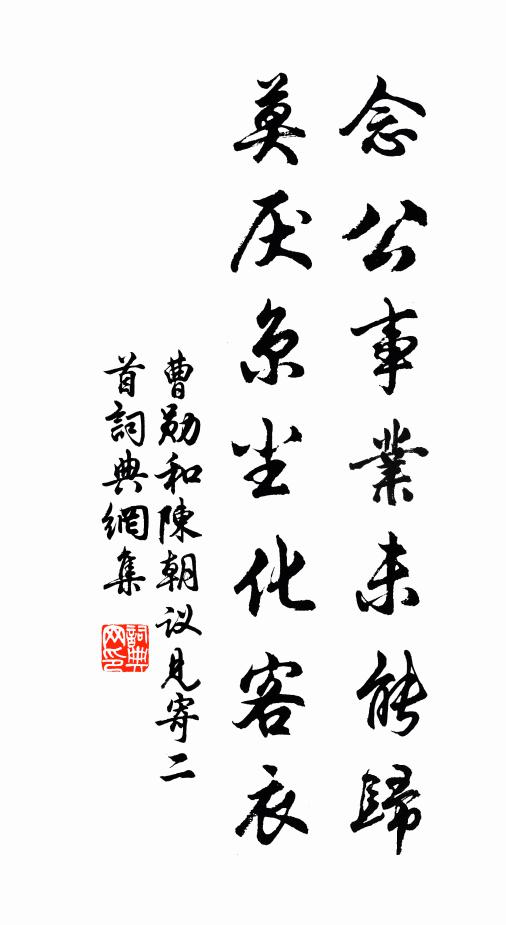 念公事業未能歸
莫厌京尘化客衣
曹勋和陳朝议見寄二
首詞典網集
詞典網印